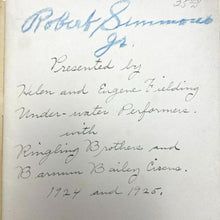 Robert Simmons
Jr.
Presented by
Helen and Eugene Fielding
Under-water Performers.
with
Ringling Brothers and
Barnum Bailey Circus.
1924 and 1925.